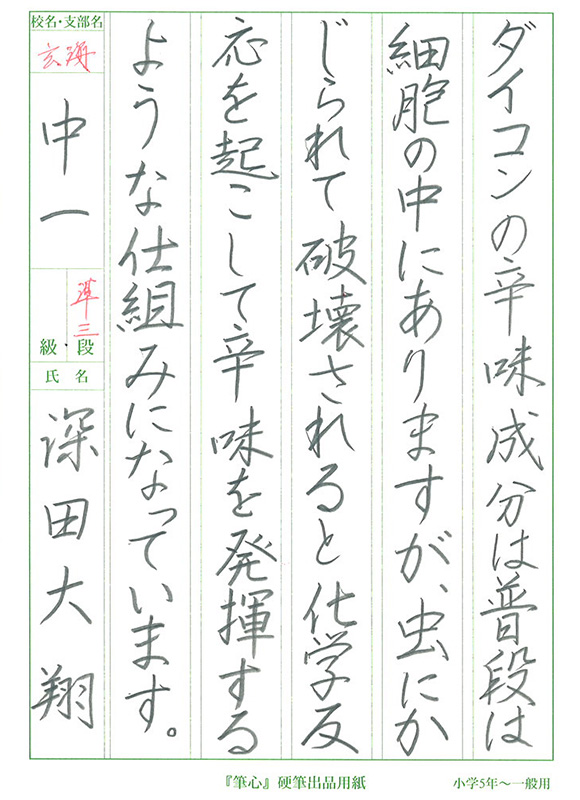 ダイコンの辛味成分は普段は
細胞の中にありますが、虫にか
じられて破壊されると化学反
応を起こして辛味を発揮する
ような仕組みになっています。
校名・支部名
玄海
中一
準三
級・段
氏名
深田大翔
『筆心』硬筆出品用紙
小学5年〜一般用